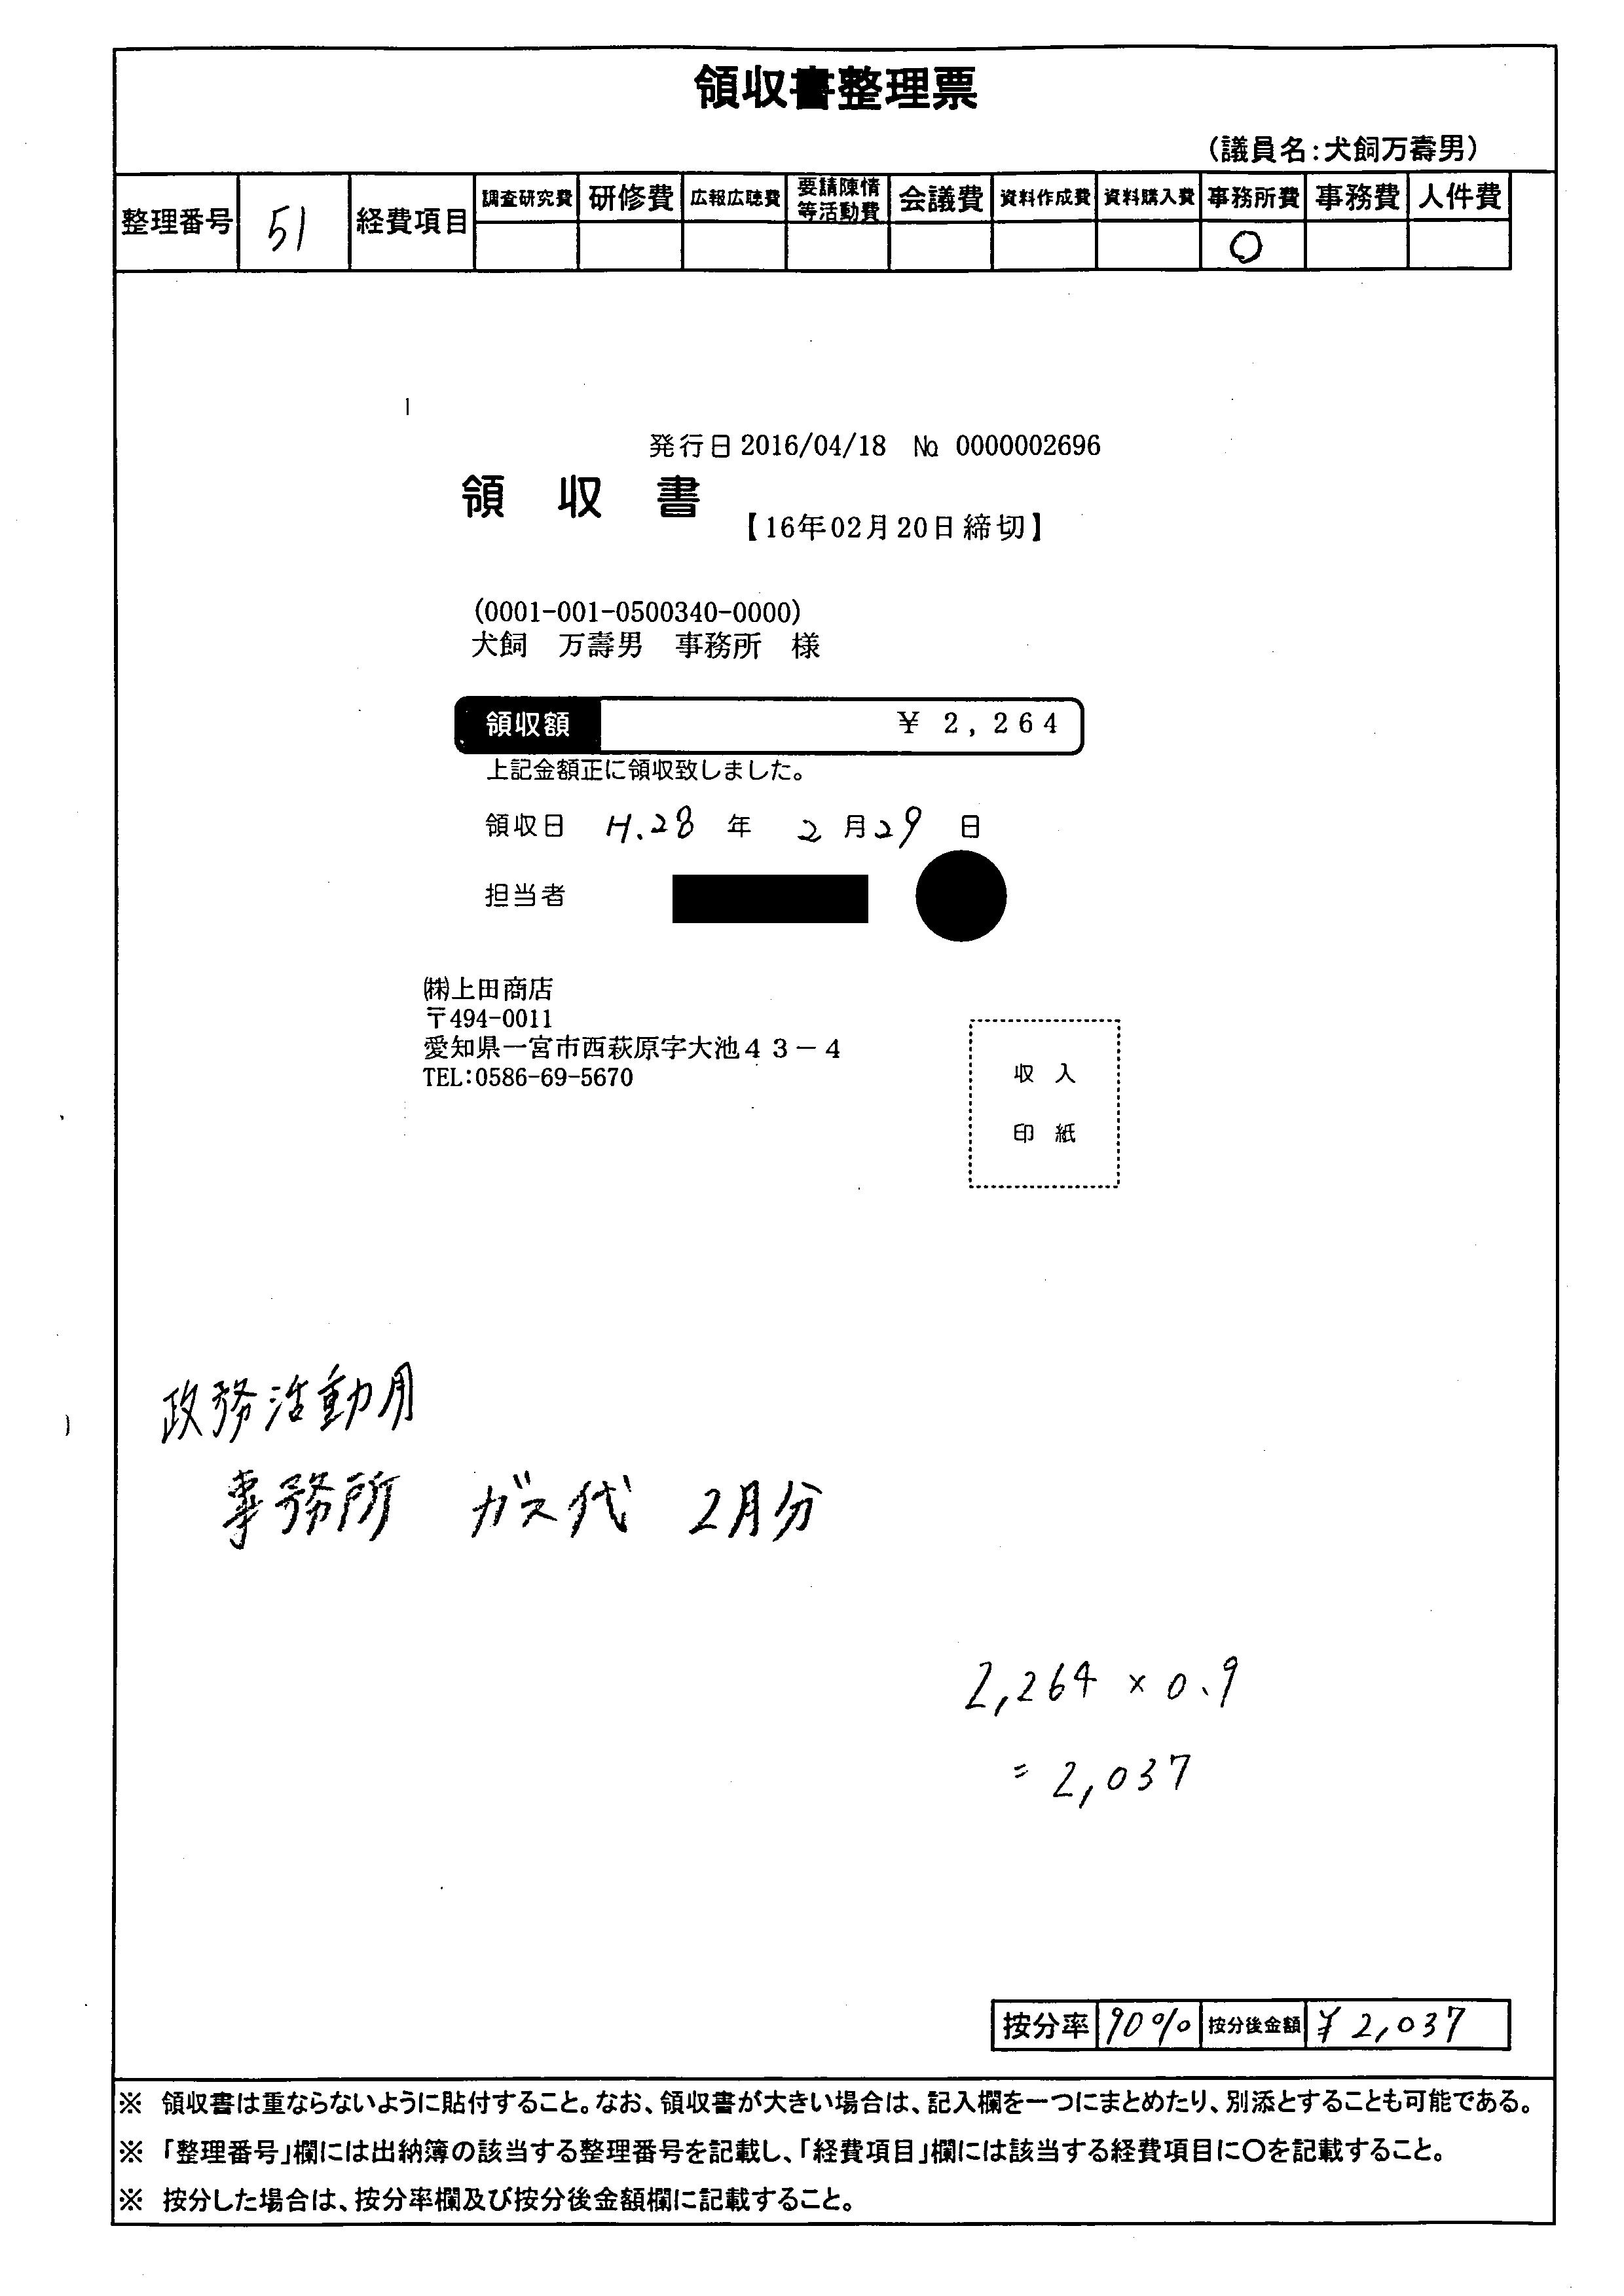 領収書整理票
（議員名：犬飼万壽男）
整理番号 51 経費項目 調査研究費 研修費 広報広聴費 要請陳情等活動費 会議費 資料作成費 資料購入費 事務所費 事務費 人件費
○
発行日 2016/04/18 № 0000002696
領 収 書
【16年02月20日締切】
(0001-001-0500340-0000)
犬飼 万壽男 事務所 様
領収額 ￥2,264
上記金額正に領収致しました。
領収日 H.28 年 2 月 29 日
担当者
㈱上田商店
〒494-0011
愛知県一宮市西萩原字大池４３－４
TEL:0586-69-5670
収 入
印 紙
政務活動用
事務所 ガス代 2月分
2,264 × 0.9
= 2,037
按分率 90% 按分後金額 ¥2,037
※ 領収書は重ならないように貼付すること。なお、領収書が大きい場合は、記入欄を一つにまとめたり、別添とすることも可能である。
※ 「整理番号」欄には出納簿の該当する整理番号を記載し、「経費項目」欄には該当する経費項目に〇を記載すること。
※ 按分した場合は、按分率欄及び按分後金額欄に記載すること。